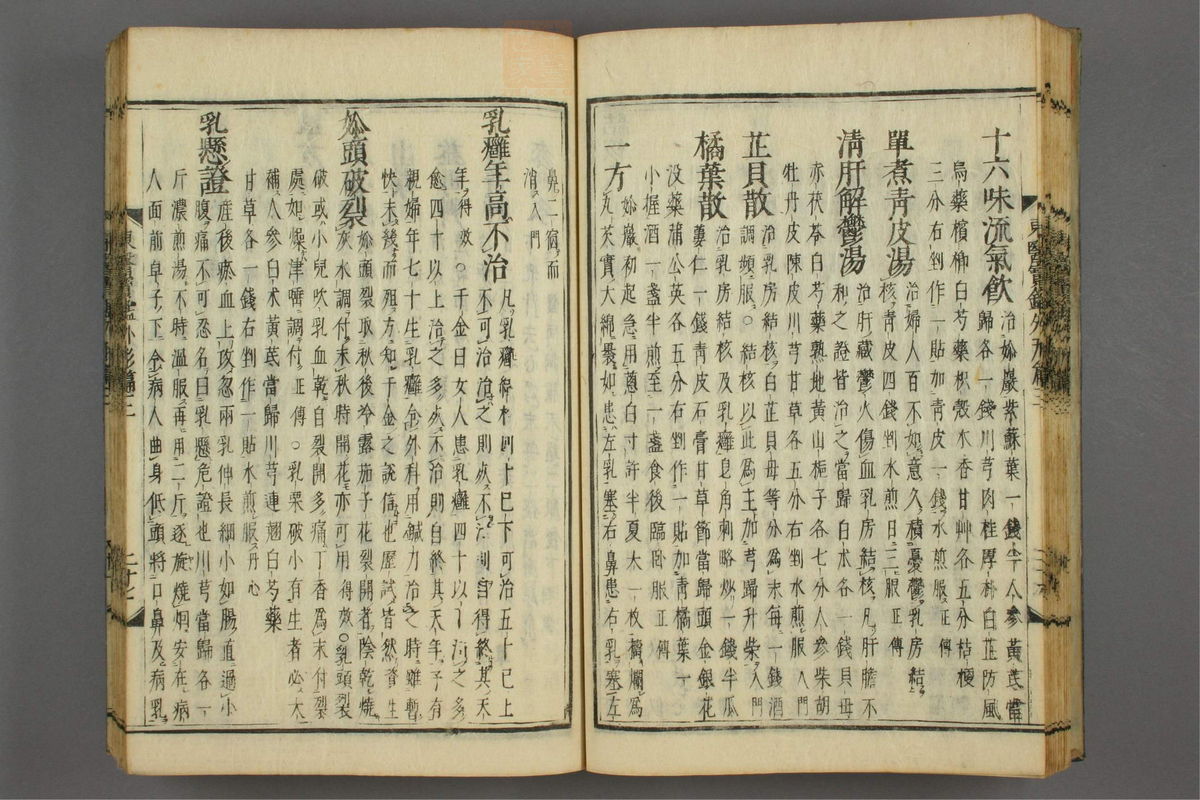 十六味流氣飮 治妳巖紫蘇葉一錢半人參黃芪當
歸各一錢川芎肉桂厚朴白芷防風
烏藥檳榔白芍藥枳殼木香甘艸各五分桔梗
三分右剉作一貼加靑皮一錢水煎服正傳
單煮靑皮湯 治婦人百不如意久積憂鬱乳房結
核靑皮四錢剉水煎日二服正傳
淸肝解鬱湯 治肝藏鬱火傷血乳房結核凡肝膽不
和之證皆治之當歸白朮各一錢貝母
赤茯苓白芍藥熟地黃山梔子各七分人參柴胡
牡丹皮陳皮川芎甘草各五分右剉水煎服入門
芷貝散 治乳房結核白芷貝母等分爲末每一錢酒
調頻服○結核以此爲主加芎歸升柴入門
橘葉散 治乳房結核及乳癰皂角刺略炒一錢半瓜
蔞仁一錢靑皮石膏甘草節當歸頭金銀花
沒藥蒲公英各五分右剉作一貼加靑橘葉一
小握酒一盞半煎至一盞食後臨臥服正傳
一方 妳巖初起急用蔥白寸許半夏大一枚擣爛爲
丸芡實大綿褁如患左乳塞右鼻患右乳塞左
鼻二宿而
消入門
乳癰年高不治 凡乳癰候朴四十已下可治五十已上
不可治治之則死不治則自得終其天
年得效○千金曰女人患乳癰四十以下治之多
愈四十以上治之多死不治則自終其天年予有
親婦年七十生乳癰令外科用鍼刀治之時雖暫
快未幾而殂方知千金之說信也屢試皆然資生
妳頭破裂 妳頭裂取秋後冷露茄子花裂開者陰乾燒
灰水調付未秋時開花亦可用得效○乳頭裂
破或小兒吹乳血乾自裂開多痛丁香爲末付裂
處如燥津唾調付正傳○乳栗破小有生者必大
補人參白朮黃芪當歸川芎連翹白芍藥
甘草各一錢右剉作一貼水煎服丹心
乳懸證 産後瘀血上攻忽兩乳伸長細小如腸直過小
腹痛不可忍名曰乳懸危證也川芎當歸各一
斤濃煎湯不時溫服再用二斤逐旋燒烟安在病
人面前卓子下令病人曲身低頭將口鼻及病乳
東醫寶鑑外形篇三
東醫寶鑑外形篇三
二十七